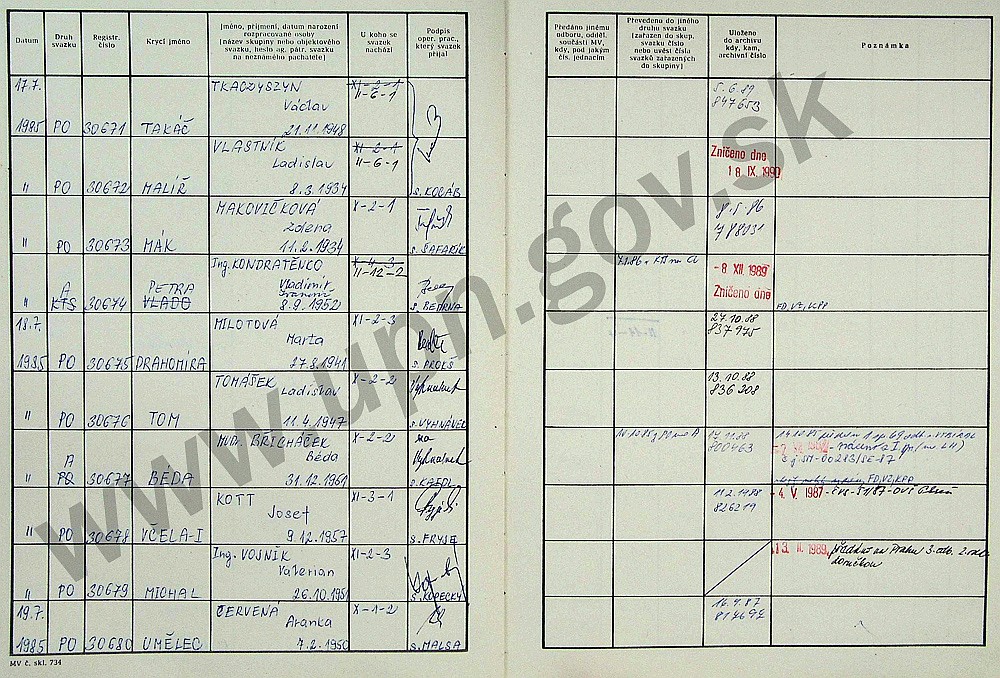 Datum
Druh svazku
Registr. číslo
Krycí jméno
Jméno, příjmení, datum narození
rozpracované osoby
(název skupiny nebo objektového
svazku, heslo ag. pátr. svazku
na neznámého pachatele)
U koho se
svazek
nachází
Podpis
oper. prac.,
který svazek
přijal
Předáno jinému
odboru, odděl.
součásti MV,
kdy, pod jakým
čís. jednacím
Převedeno do jiného
druhu svazku
(zařazen do skup.
svazku číslo
nebo uvést čísla
svazků zařazených
do skupiny)
Uloženo
do archivu
kdy, kam,
archivní číslo
Poznámka
17.7. TKACZYSZYN XI-2-1 5.6.89
Václav II-6-1 847653
1985 PO 30671 TAKÁČ 21.11.1948
VLASTNÍK XI-2-1 Zničeno dne
Ladislav II-6-1 18. IX. 1990
" PO 30672 MALÍŘ 8.3.1934 s. KOCÁB
MAKOVIČKOVÁ X-2-1 8.5.86
Zdena 788931
" PO 30673 MÁK 11.2.1934 s. ŠAFAŘÍK
Ing. KONDRATĚNKO X-4-3 -8. XII. 1989
A PETRA Vladimír II-12-2 Zničeno dne
" KTS 30674 VLADO 8.9.1952 s. BEDRNA FD, VZ, KPP
18.7. MILOTOVÁ XI-2-3 27.10.88
Marta 837975
1985 PO 30675 DRAHOMÍRA 27.8.1941 s. PROKŠ
TOMÁŠEK X-2-2 13.10.88
Ladislav 836308
" PO 30676 TOM 11.4.1947 s. VYHNÁLEK
MUDr. BŘICHÁČEK X-2-2 17.11.88
A Béda 800463
" PO 30677 BÉDA 31.12.1961 s. KAJDL FD, VZ, KPP
KOTT XI-3-1 11.2.1988 -4. V. 1987
Josef 826219
" PO 30678 VČELA-I 9.12.1957 s. FRYŠE
Ing. VOJNÍK XI-2-3 13. II. 1989
Valerian
" PO 30679 MICHAL 26.10.1951 s. KOPECKÝ
19.7. ČERVENÁ X-1-2 16.4.87
Aranka
1985 PO 30680 UMĚLEC 7.2.1950 s. MALSA
MV č. skl. 734
www.upn.gov.sk